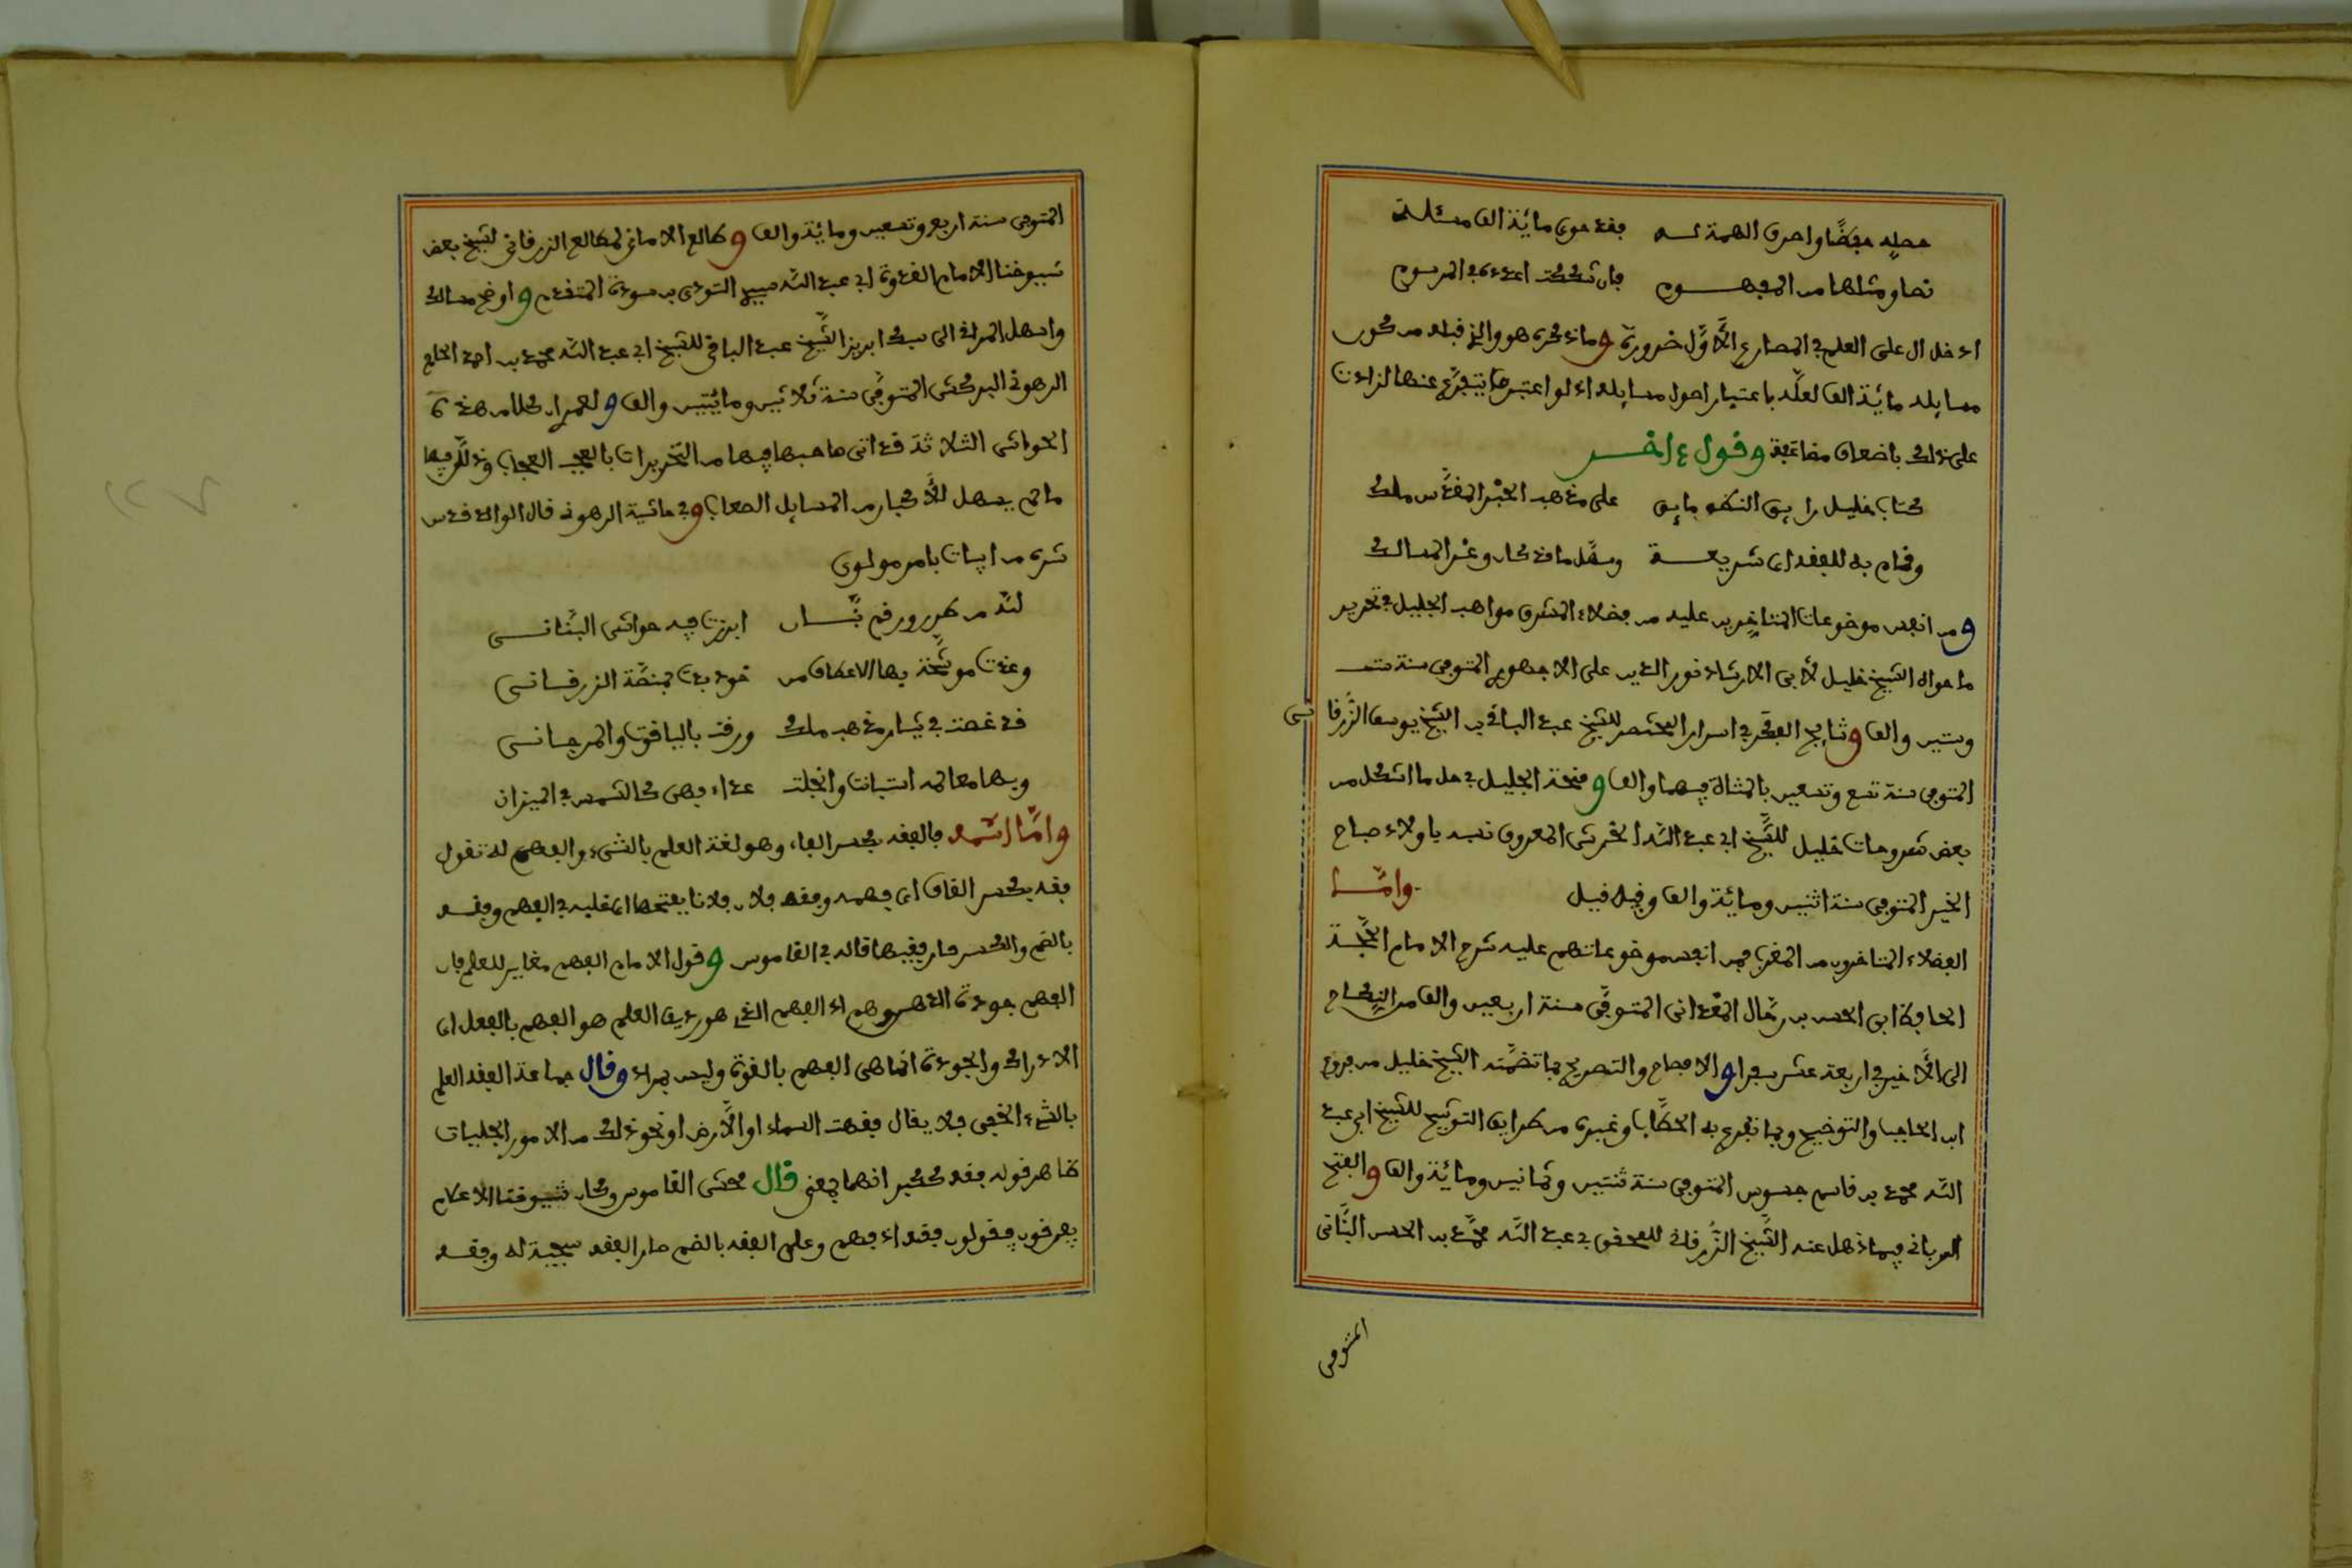 حصله حفظا واصرف الهمة له فقد حوى مائة الف مسئلة
نصا ومثلها من المفهوم فان شككت اعدده في المرسوم
ادخل ال على العلم في المصارع الأول ضرورة وما ذكره هو والذ قبله من كون
مسايله مائة الف لعله باعتبار اصول مسايله اذ لو اعتبر ما يتفرع عنها لزادت
على ذلك باضعاف مضاعفة وقول اخر
كتاب خليل رايق النكه فايق على مذهب الحبر المقدس ملك
وقام به للفقه اى شريعة وسهل ما قد كان وعر المسالك
ومن انفس موضوعات المتاخرين عليه من فضلاء المشرق مواهب الجليل في تحرير
ما حواه الشيخ خليل لأبي الارشاد نور الدين على الاجهورى المتوفى سنة ست
وستين والف ونتايج الفكر في اسرار المختصر للشيخ عبد الباقي بن الشيخ يوسف الزرقانى
المتوفى سنة تسع وتسعين بالمثناة فيهما والف ومنحة الجليل في حل ما اشكل من
بعض شروحات خليل للشيخ ابي عبد الله الخرشى المعروف نسبه باولاد صباح
الخير المتوفى سنة اثنين ومائة والف وقيل قبل واما
الفضلاء المتاخرون من المغرب فمن انفس موضوعاتهم عليه شرح الامام الحجة
الحافظ ابى الحسن بن رحال المعدانى المتوفى سنة اربعين والف من النكاح
الى الأخير في اربعة عشر سفرا والافصاح والتصريح بما تضمنه الشيخ خليل من فروع
ابن الحاجب والتوضيح وبما تفرع به الحطاب وغيره من طرايف التوشيح للشيخ ابى عبد
الله محمد بن قاسم جسوس المتوفى سنة ثنتين وثمانين ومائة والف والفتح
الربانى فيما ذهل عنه الشيخ الزرقانى للمحقق ابي عبد الله محمد بن الحسن البنانى
المتوفى
المتوفى سنة اربع وتسعين ومائة والف وطالع الامانى لمطالع الزرقانى لشيخ بعض
شيوخنا الامام القدوة ابي عبد الله سيدى التودى بن سودة المتقدم واوضح مسالك
واسهل المراقى الى سبك ابريز الشيخ عبد الباقى للشيخ ابي عبد الله محمد بن احمد الحاج
الرهونى البركشى المتوفى سنة ثلاثين ومائتين والف ولعمرى ان كلا من هذه
الحواشى الثلاثة قد اتى صاحبها فيها من التحريرات بالعجب العجاب وذلل فيها
مالم يسهل للأحبار من المسايل الصعاب وفي حاشية الرهونى قال الوالد قدس
سره من ابيات بامر مولوى
لله من طرر ورقم بنان ابرزت فيه حواشى البنانى
وغدت موشحة بها الاعطاف من خود بدت بمنصة الزرقانى
قد غصت في تيار مذهب ملك ورقت باليافوت والمرجانى
وبها معالمه استبانت وانجلت عذراء فهى كالشمس في الميزان
واما اسمه فالفقه بكسر الفاء وهو لغة العلم بالشىء والفهم له تقول
فقه بكسر القاف اى فهمه وفقه فلان فلانا بفتحها اى غلبه في الفهم وفقه
بالضم والكسر صار فقيها قاله في القاموس وقول الامام الفهم مغاير للعلم فان
الفهم جودة الذهن وهم اذ الفهم الذى هو رديف العلم هو الفهم بالفعل اى
الادراك والجودة انما هى الفهم بالقوة وليس بمراد وقال جماعة الفقه العلم
بالشىء الخفى فلا يقال فقهت السماء او الأرض او نحو ذلك من الامور الجليات
ظاهر قوله فقه ككبر انهما بمعنى قال محشى القاموس وكان شيوخنا الاعلام
يفرقون فيقولون فقه اذ فهم وعلم الفقه بالضم صار الفقه سجية له وفقه